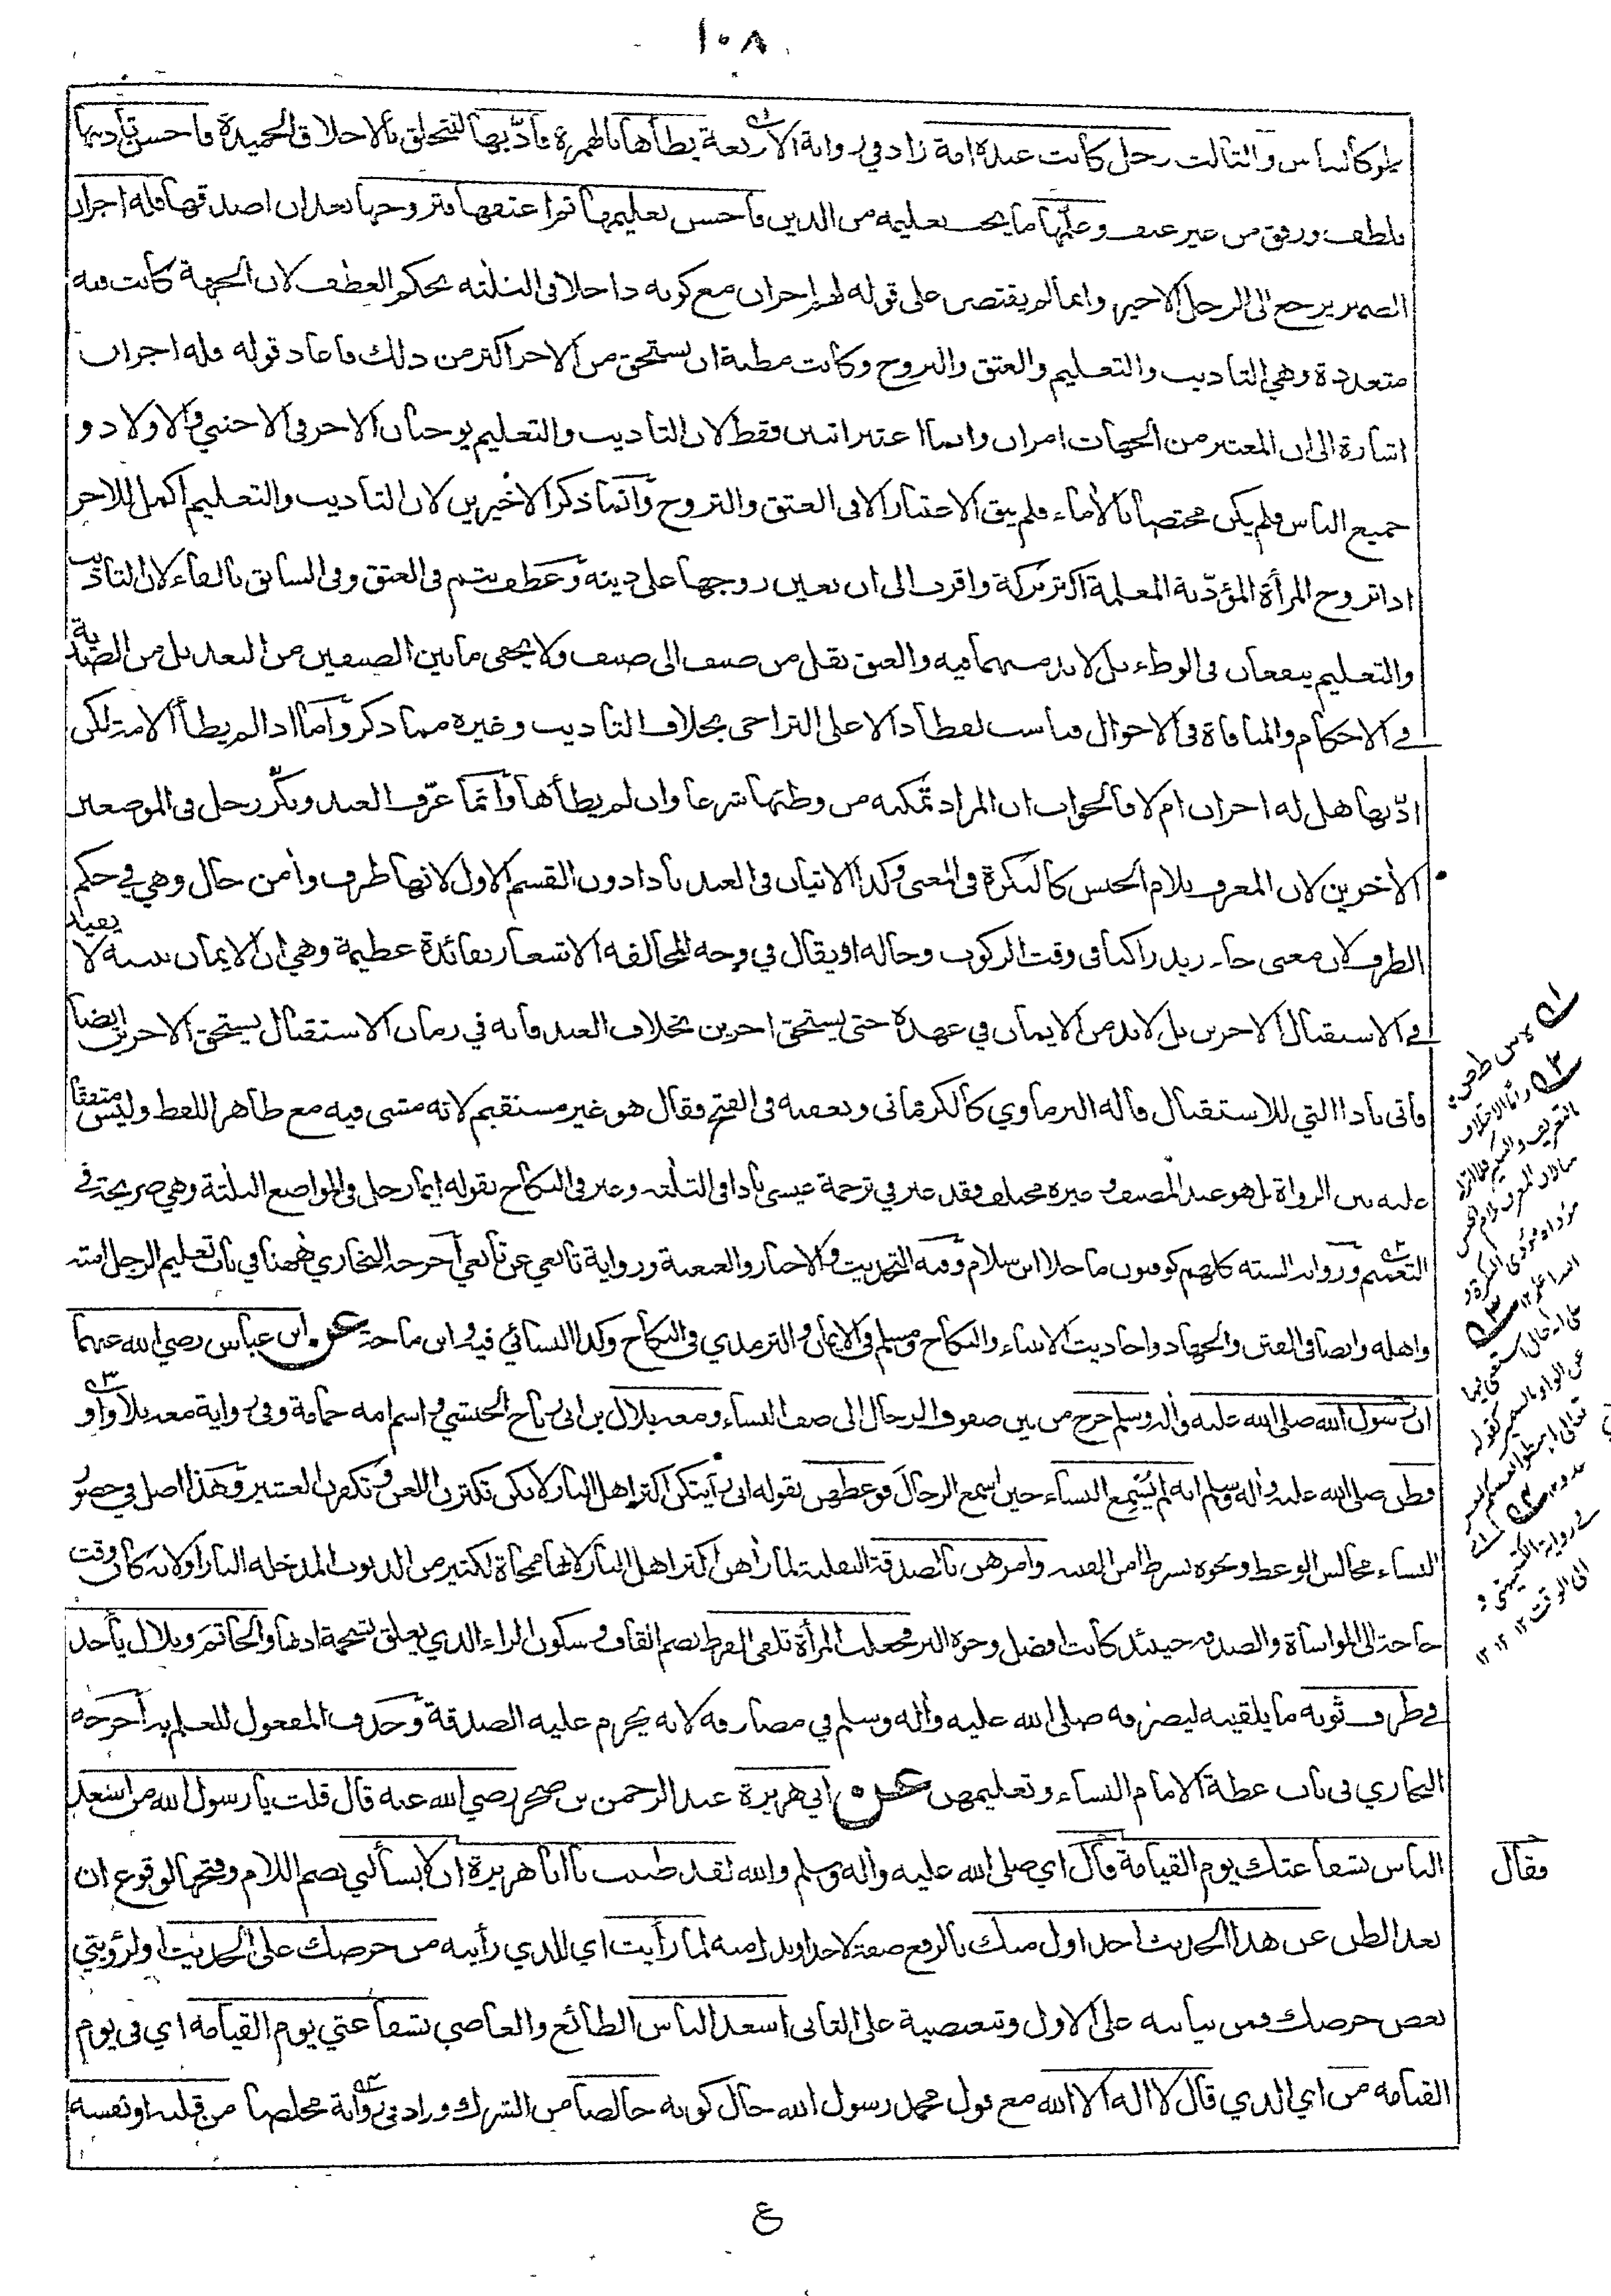 ١٠٨
طوكا لناس والثالث رجل كانت عنده امة زاد في رواية الاربعة يطأها بالهمزة فأدّبها لتتخلق بالاخلاق الحميدة فاحسن تأديبها
بلطف ورفق من غير عنف وعلّمها ما يجب تعليمه من الدين فاحسن تعليمها ثم اعتقها فتزوجها بعد ان اصدقها فله اجران
الضمير يرجع الى الرجل الاخير وانما لم يقتصر على قوله لهم اجران مع كونه داخلا في الثلثة بحكم العطف لان الجهة كانت فيه
متعددة وهي التاديب والتعليم والعتق والتزوج وكانت مظنة ان يستحق من الاجر اكثر من ذلك فاعاد قوله فله اجران
اشارة الى ان المعتبر من الجهات امران وانما اعتبر اثنين فقط لان التاديب والتعليم يوجبان الاجر في الاجنبي والاولاد و
جميع الناس فلم يكن مختصا بالاماء فلم يبق الاعتبار الا في العتق والتزوج وانما ذكر الاخيرين لان التاديب والتعليم اكمل للاجر
اذا تزوج المرأة المؤدّبة المعلمة اكثر بركة واقرب الى ان تعين زوجها على دينه وعطف بثم في العتق وفي السابق بالفاء لان التاديب
والتعليم ينفعان في الوطء بل لابد منهما فيه والعتق نقل من صنف الى صنف ولا يخفى ما بين الصنفين من البعد بل من الضدية
في الاحكام والمنافاة في الاحوال فناسب لفظا دالا على التراخي بخلاف التاديب وغيره مما ذكر واما اذا لم يطأ الامة لكن
ادّبها هل له اجران ام لا فالجواب ان المراد تمكنه من وطئها شرعا وان لم يطأها وانما عرّف العبد ونكّر رجل في الموضعين
الاخرين لان المعرف بلام الجنس كالنكرة في المعنى وكذا الاتيان في العبد باذا دون القسم الاول لانها ظرف وآمن حال وهي في حكم
الظرف لان معنى جاء زيد راكبا في وقت الركوب وحاله او يقال في وجه المخالفة الاشعار بفائدة عظيمة وهي ان الايمان بنبيه لا يفيد
في الاستقبال الاجرين بل لابد من الايمان في عهده حتى يستحق اجرين بخلاف العبد فانه في زمان الاستقبال يستحق الاجرين ايضا
فأتى باذا التي للاستقبال قاله البرماوي كالكرماني وتعقبه في الفتح فقال هو غير مستقيم لانه مشى فيه مع ظاهر اللفظ وليس متفقا
عليه بين الرواة بل هو عند المصنف وغيره مختلف فقد عبر في ترجمة عيسى باذا في الثلثة وعبر في النكاح بقوله ايما رجل في المواضع الثلثة وهي صريحة في
التعميم ورواته الستة كلهم كوفيون ما خلا ابن سلام وفيه التحديث والاخبار والعنعنة ورواية تابعي عن تابعي أخرجه البخاري ههنا في باب تعليم الرجل امته
واهله وايضا في العتق والجهاد واحاديث الانبياء والنكاح ومسلم في الايمان والترمذي في النكاح وكذا النسائي فيه وابن ماجة عن ابن عباس رضي الله عنهما
ان رسول الله صلى الله عليه وآله وسلم خرج من بين صفوف الرجال الى صف النساء ومعه بلال بن ابي رباح الحبشي واسم امه حمامة وفي رواية معه بلا واو
فظن صلى الله عليه وآله وسلم انه لم يُسْمِع النساء حين اسمع الرجال فوعظهن بقوله اني رأيتكن اكثر اهل النار لانكن تكثرن اللعن وتكفرن العشير وهذا اصل في حضور
النساء مجالس الوعظ ونحوه بشرط امن الفتنة وامرهن بالصدقة النفلية لما رأهن اكثر اهل النار لانها ممحاة لكثير من الذنوب المدخلة النار اولانه كان وقت
حاجة الى المواساة والصدقة حينئذ كانت افضل وجوه البر فجعلت المرأة تلقى القرط بضم القاف وسكون الراء الذي يعلق بشحمة اذنها والخاتم وبلال يأخذ
في طرف ثوبه ما يلقينه ليصرفه صلى الله عليه وآله وسلم في مصارفه لانه يحرم عليه الصدقة وحذف المفعول للعلم به أخرجه
البخاري في باب عظة الامام النساء وتعليمهن عن ابي هريرة عبد الرحمن بن صخر رضي الله عنه قال قلت يا رسول الله من اسعد
الناس بشفاعتك يوم القيامة قال اي صلى الله عليه وآله وسلم والله لقد ظننت يا ابا هريرة ان لا يسألني بضم اللام وفتحها لوقوع ان
بعد الظن عن هذا الحديث احد اول منك بالرفع صفة لاحد او بدل منه لما رأيت اي للذي رأيته من حرصك على الحديث او لرؤيتي
بعض حرصك فمن بيانية على الاول وتبعيضية على الثاني اسعد الناس الطائع والعاصي بشفاعتي يوم القيامة اي في يوم
القيامة من اي الذي قال لا اله الا الله مع قول محمد رسول الله حال كونه خالصا من الشرك وزاد في رواية مخلصا من قلبه او نفسه
فقال